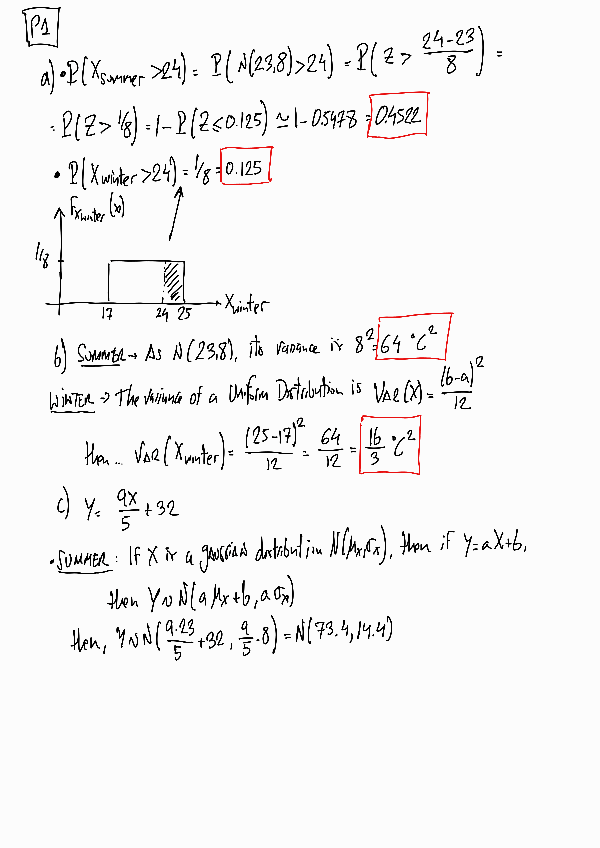 P1
a) • P(X_summer > 24) = P(N(23,8) > 24) = P(Z > (24-23)/8) =
= P(Z > 1/8) = 1 - P(Z ≤ 0.125) ≃ 1 - 0.5478 = 0.4522
• P(X_winter > 24) = 1/8 = 0.125
F_Xwinter(x)
1/8
17 24 25 X_winter
b) SUMMER → As N(23,8), its variance is 8² = 64 °C²
WINTER → The variance of a Uniform Distribution is VAR(X) = (b-a)²/12
then... VAR(X_winter) = (25-17)²/12 = 64/12 = 16/3 °C²
c) Y = 9X/5 + 32
• SUMMER: If X is a gaussian distribution N(μx,σx), then if Y=aX+b,
then Y∼N(aμx+b, aσx)
then, Y∼N(9·23/5 + 32, 9/5·8) = N(73.4, 14.4)